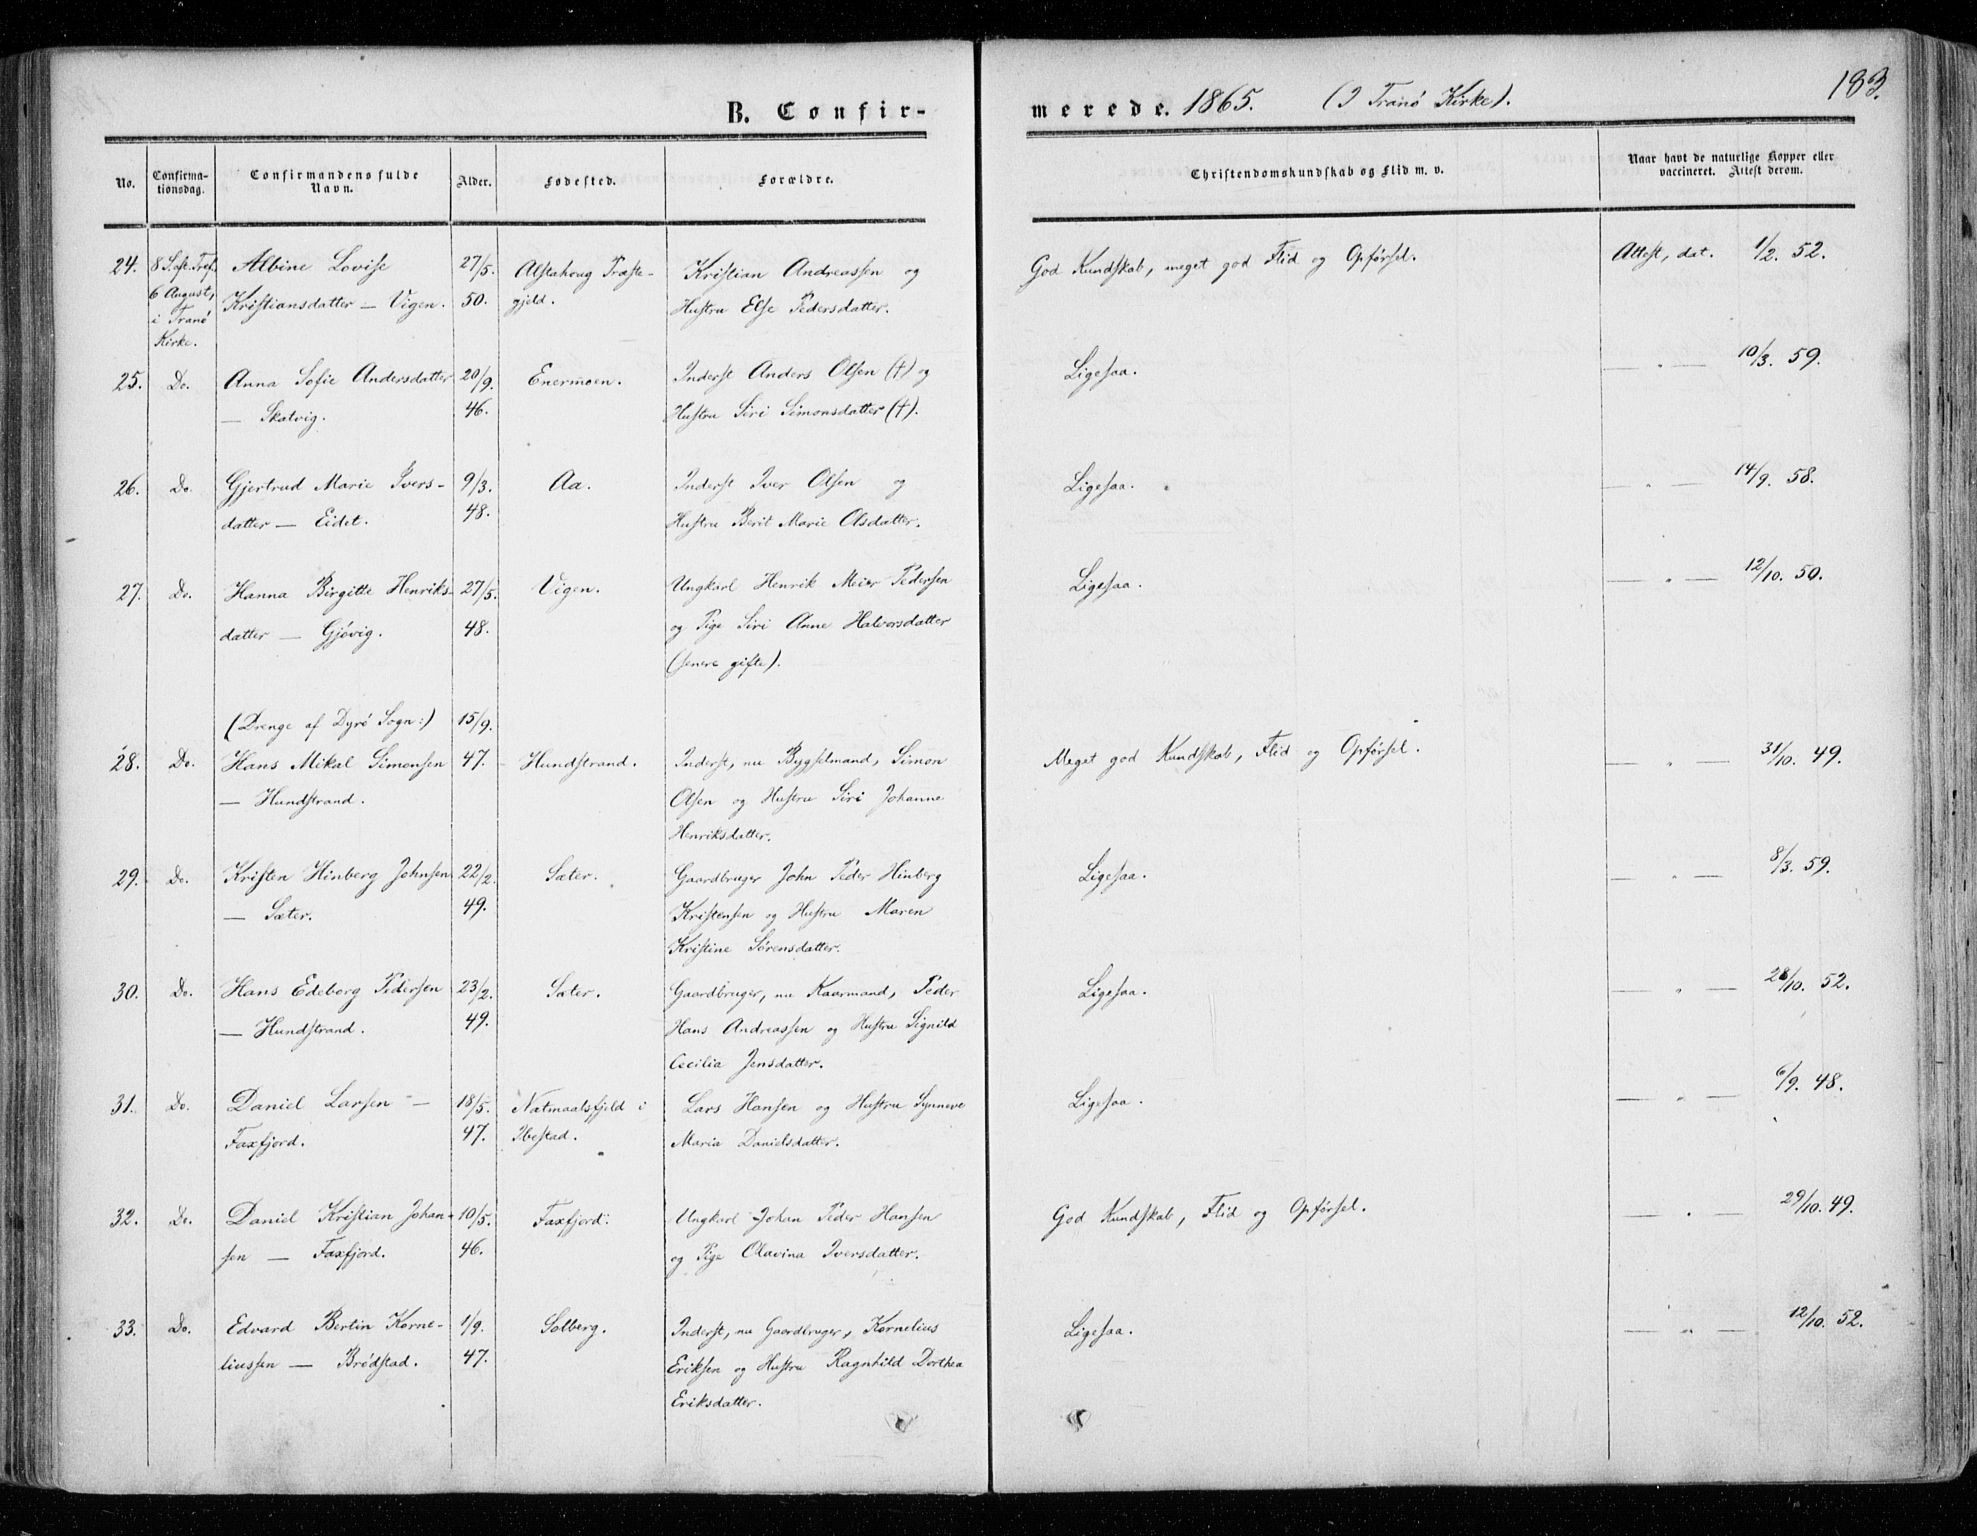 183.
B. Confirmerede. 1865. (I Tranø Kirke).
No.
Confirmationsdag.
Confirmandens fulde Navn.
Alder.
Fødested.
Forældre.
Christendomskundskab og Flid m. v.
Naar havt de naturlige Kopper eller vaccineret. Attest derom.
24. 8 S. eft. Tref. Albine Lovise 27/5. Alstahoug Præste- Kristian Andreassen og God Kundskab, meget god Flid og Opførsel. Attest, dat. 1/2. 52.
6 August, Kristiansdatter — Vigen. 50. gjeld. Hustru Else Pedersdatter.
i Tranø
Kirke.
25. Do. Anna Sofie Andersdatter 20/9. Enermoen. Inderst Anders Olsen (†) og Ligesaa. — " — 10/3. 59.
— Skatvig. 46. Hustru Siri Simonsdatter (†).
26. Do. Gjertrud Marie Ivers- 9/3. Aa. Inderst Iver Olsen og Ligesaa. — " — 14/9. 58.
datter — Eidet. 48. Hustru Berit Marie Olsdatter.
27. Do. Hanna Birgitte Henriks- 27/5. Vigen. Ungkarl Henrik Meier Pedersen Ligesaa. — " — 12/10. 50.
datter — Gjøvig. 48. og Pige Siri Anne Halvorsdatter
(senere gifte).
(Drenge af Dyrø Sogn:) 15/9.
28. Do. Hans Mikal Simonsen 47. Hundstrand. Inderst, nu Bygselmand, Simon Meget god Kundskab, Flid og Opførsel. — " — 31/10. 49.
— Hundstrand. Olsen og Hustru Siri Johanne
Henriksdatter.
29. Do. Kristen Hinberg Johnsen 22/2. Sæter. Gaardbruger John Peder Hinberg Ligesaa. — " — 8/3. 59.
— Sæter. 49. Kristensen og Hustru Maren
Kristine Sørensdatter.
30. Do. Hans Edeborg Pedersen 23/2. Sæter. Gaardbruger, nu Kaarmand, Peder Ligesaa. — " — 28/10. 52.
— Hundstrand. 49. Hans Andreassen og Hustru Signild
Cecilia Jensdatter.
31. Do. Daniel Larsen — 18/5. Natmaalsfjeld i Lars Hansen og Hustru Synneve Ligesaa. — " — 6/9. 48.
Faxfjord. 47. Ibestad. Maria Danielsdatter.
32. Do. Daniel Kristian Johan- 10/5. Faxfjord. Ungkarl Johan Peder Hansen God Kundskab, Flid og Opførsel. — " — 29/10. 49.
sen — Faxfjord. 46. og Pige Olavina Iversdatter.
33. Do. Edvard Bertin Korne- 1/9. Solberg. Inderst, nu Gaardbruger, Kornelius Ligesaa. — " — 12/10. 52.
liussen — Brødstad. 47. Eriksen og Hustru Ragnhild Dorthea
Eriksdatter.